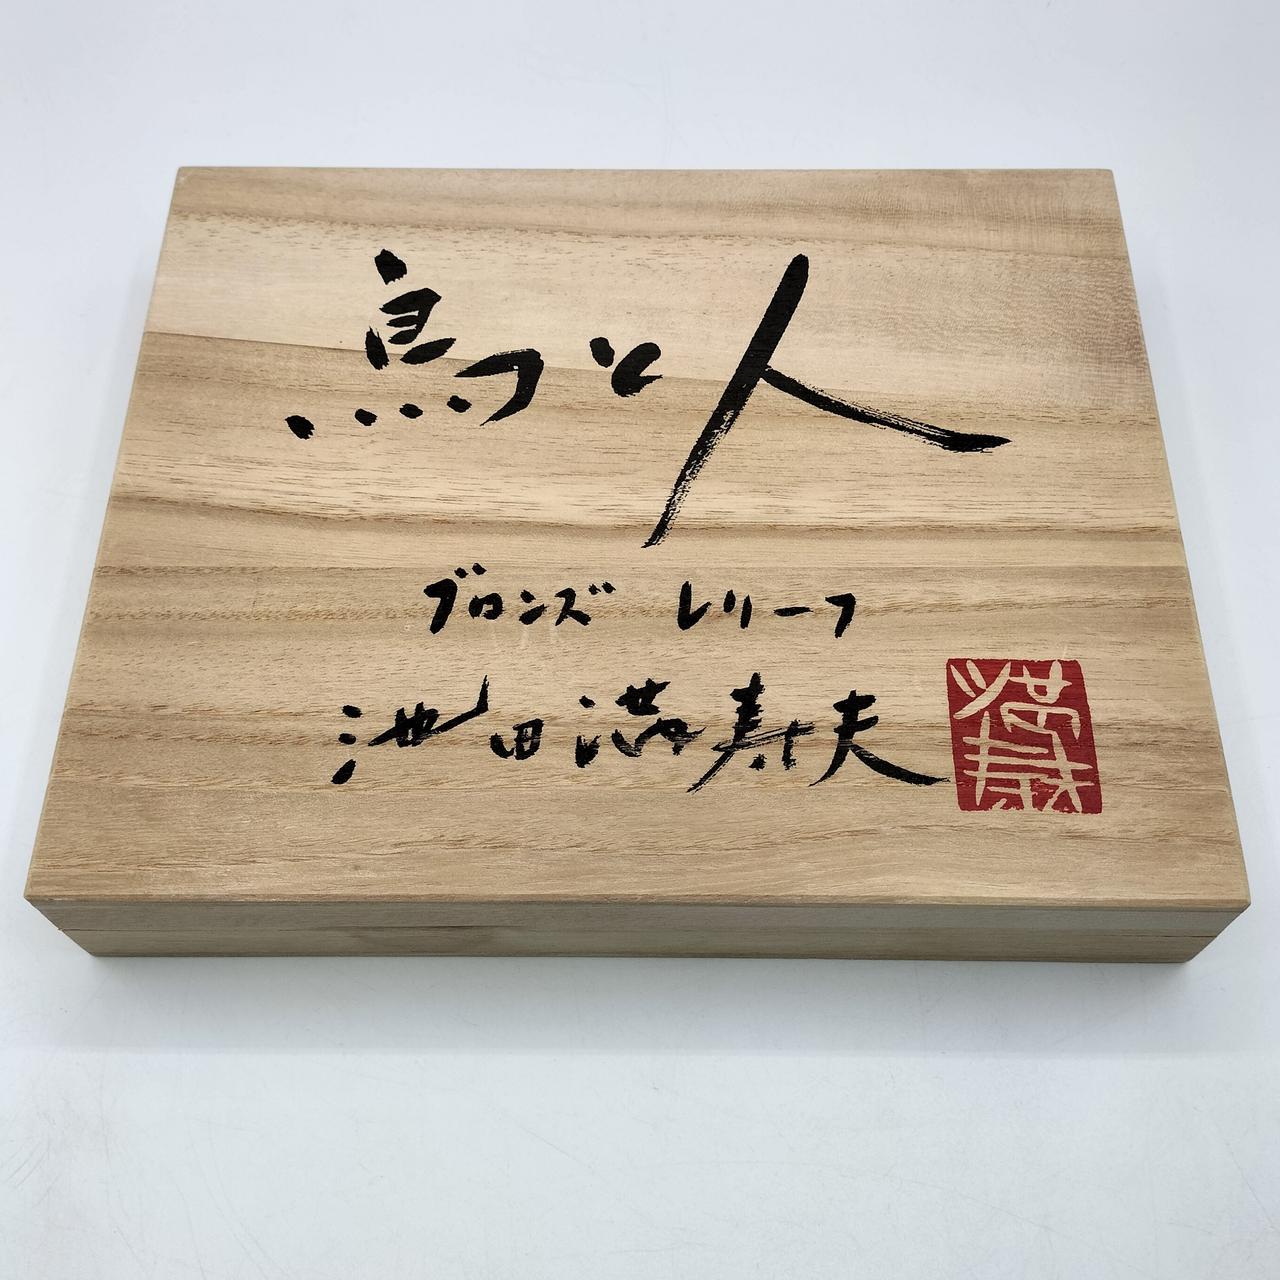 鳥と人
ブロンズ レリーフ
池田満寿夫
満寿夫